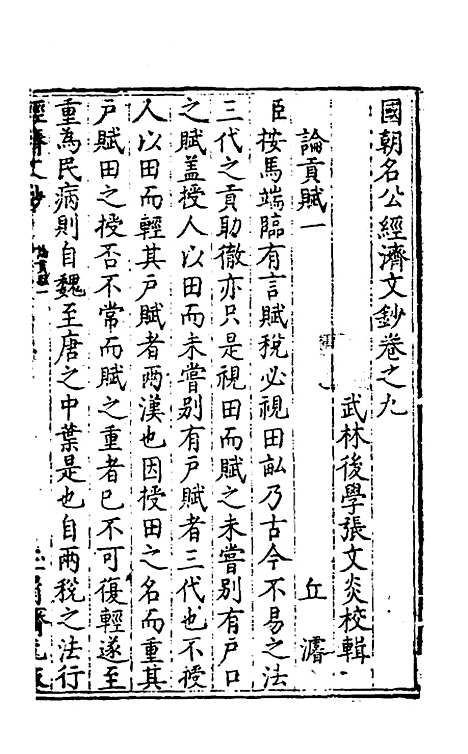 國朝名公經濟文鈔卷之九
武林後學張文炎校輯
論貢賦一
丘濬
臣按馬端臨有言賦稅必視田畝乃古今不易之法
三代之貢助徹亦只是視田而賦之未嘗別有戶口
之賦盖授人以田而未嘗別有戶賦者三代也不授
人以田而輕其戶賦者兩漢也因授田之名而重其
戶賦田之授否不常而賦之重者已不可復輕遂至
重為民病則自魏至唐之中葉是也自兩稅之法行
經濟文鈔